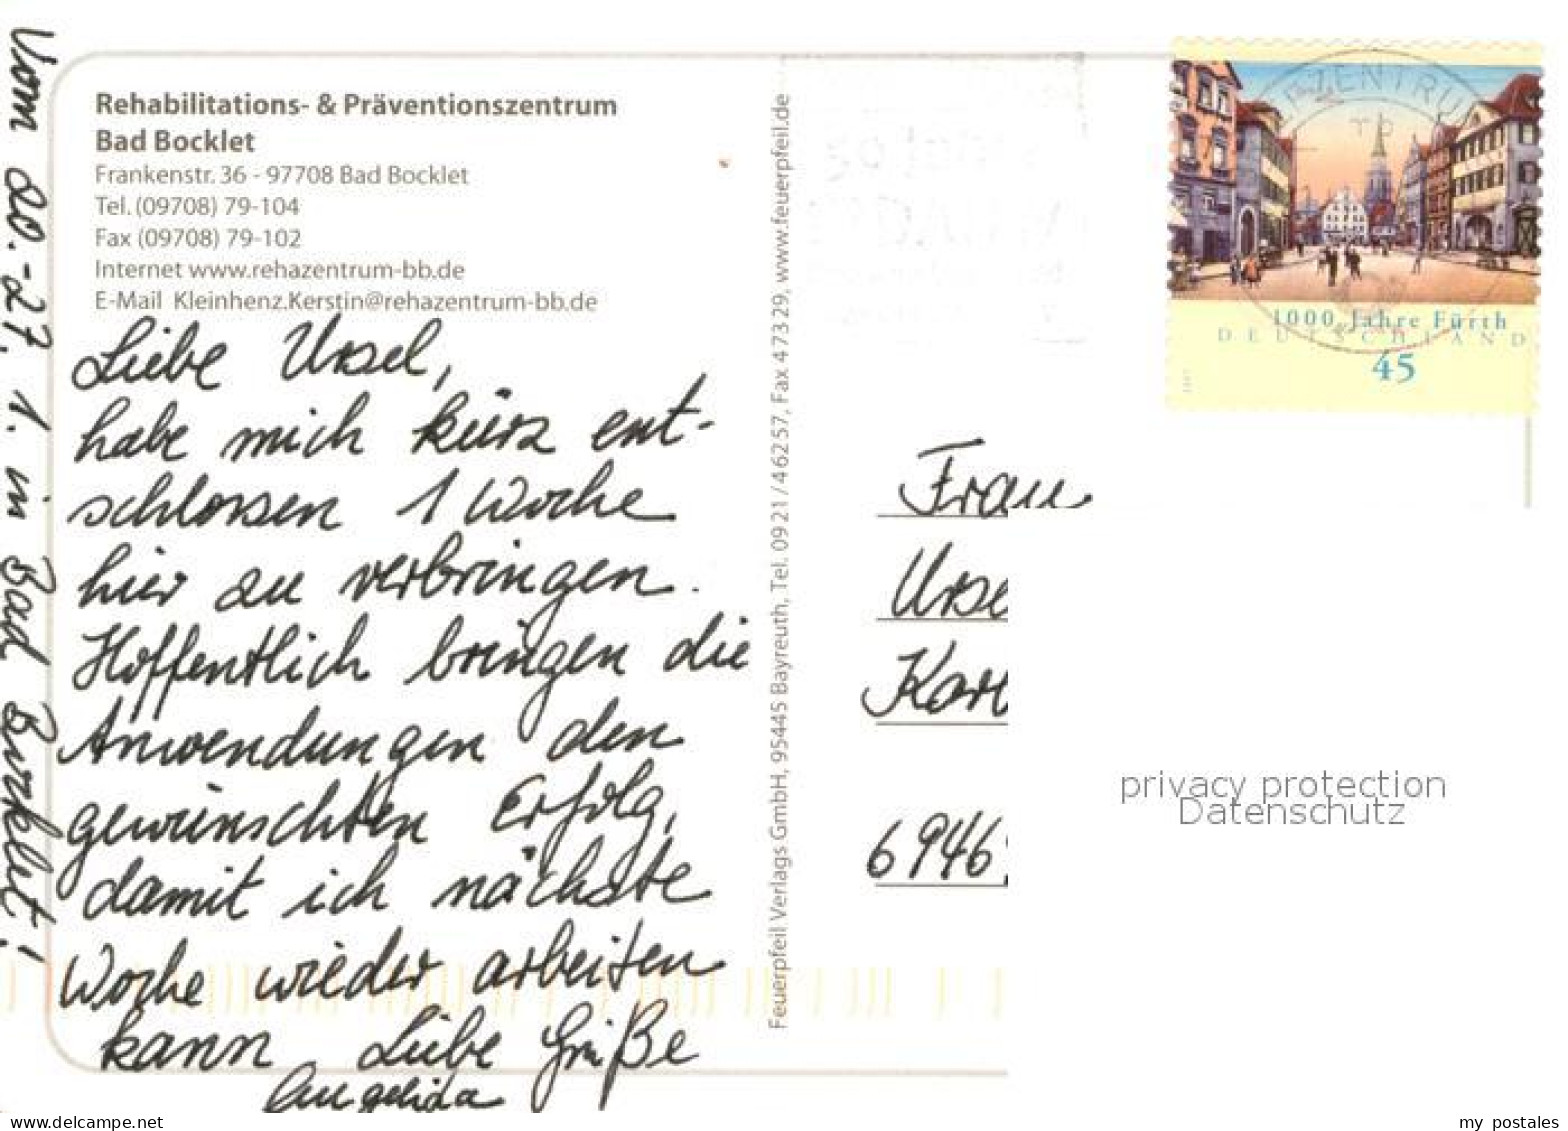 Vom 20.-27. 1. in Bad Bocklet!
Rehabilitations- & Präventionszentrum
Bad Bocklet
Frankenstr. 36 - 97708 Bad Bocklet
Tel. (09708) 79-104
Fax (09708) 79-102
Internet www.rehazentrum-bb.de
E-Mail Kleinhenz.Kerstin@rehazentrum-bb.de
Liebe Ursel,
habe mich kurz ent-
schlossen 1 Woche
hier zu verbringen.
Hoffentlich bringen die
Anwendungen den
gewünschten Erfolg,
damit ich nächste
Woche wieder arbeiten
kann. Liebe Grüße
Angelida
Feuerpfeil Verlags GmbH, 95445 Bayreuth, Tel. 0921/46257, Fax 47329, www.feuerpfeil.de
1000 Jahre Fürth
DEUTSCHLAND
45
Frau
Urse
Kar
6946
privacy protection
Datenschutz
www.delcampe.net
my_postales